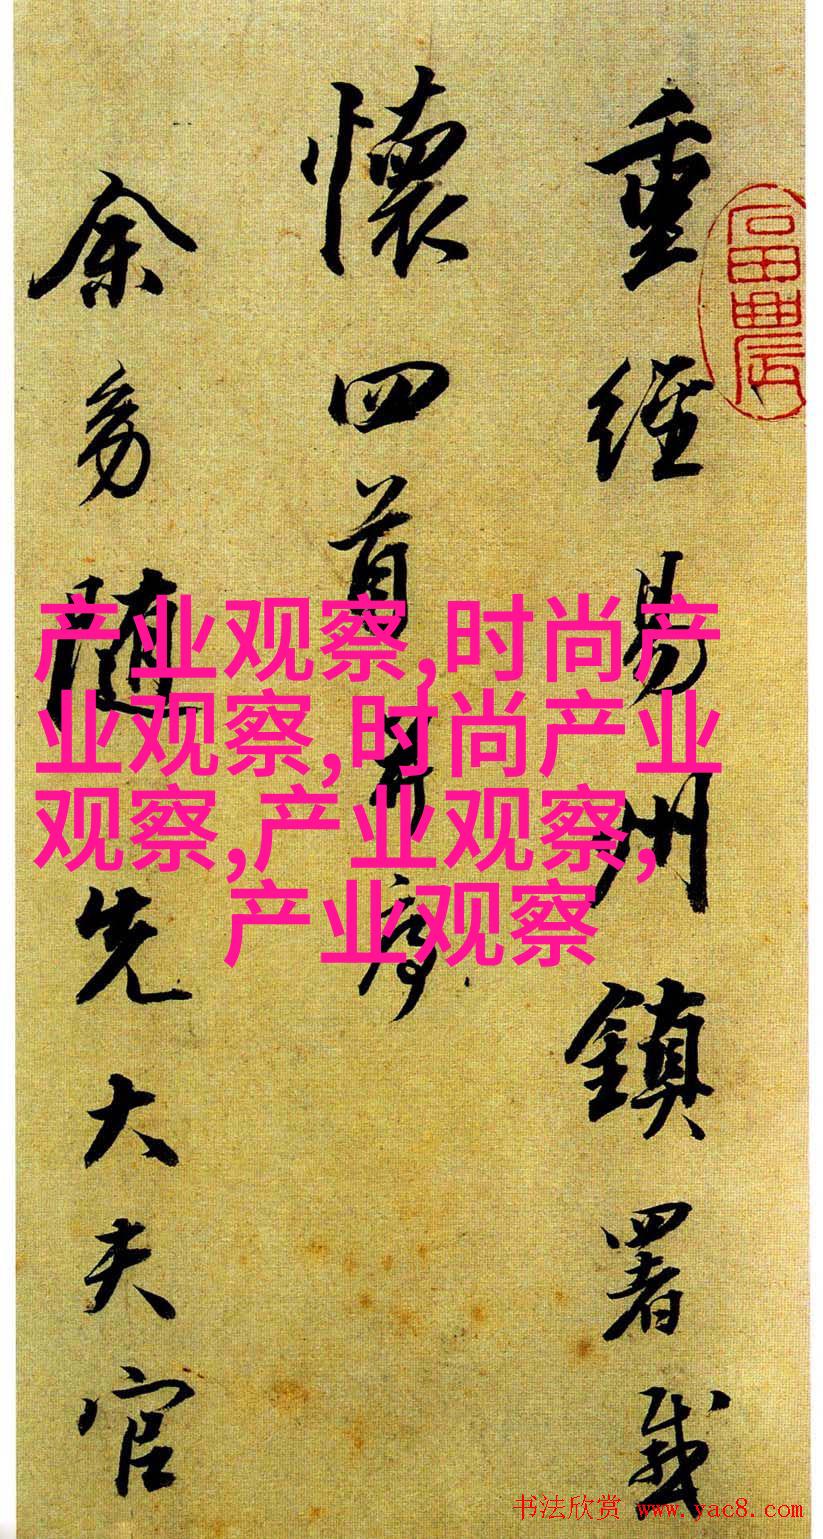 重经易州镇署感
懷四首并序
余家随先大夫官
产业观察,时尚产
业观察,时尚产业
观察,产业观察,
产业观察
书法欣赏 www.yac8.com